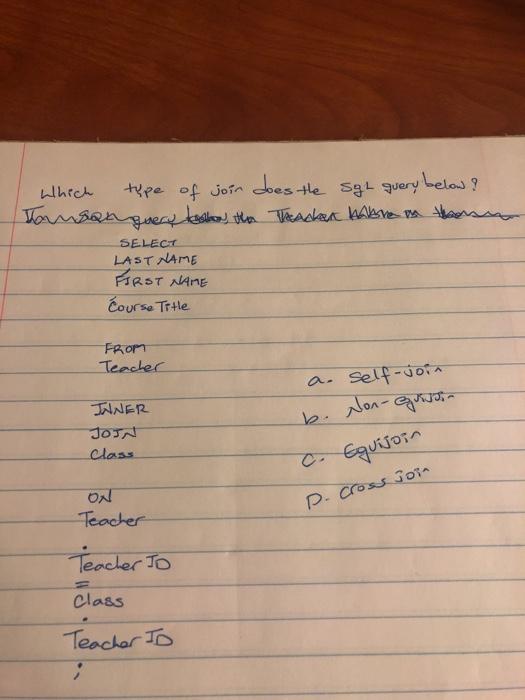 Which type of join does the SQL query below?
query the Teacher
SELECT
LAST NAME
FIRST NAME
Course Title
FROM
Teacher
INNER
JOIN
Class
ON
Teacher
.
Teacher ID
=
Class
.
Teacher ID
;
a. Self-join
b. Non-equijoin
c. Equijoin
D. Cross join